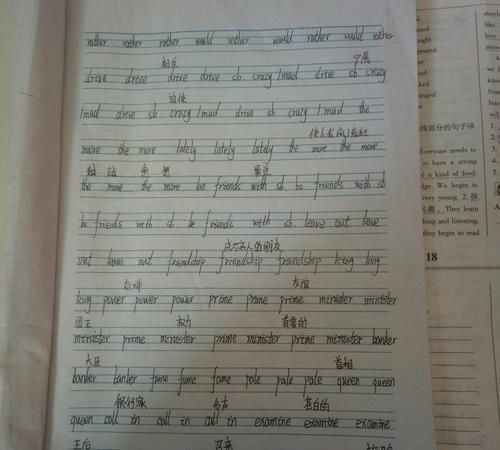 rather rather rather would rather would rather would rather
相反 宁愿
drive drive drive drive sb. crazy/mad drive sb. crazy
迫使
/mad drive sb crazy/mad drive sb crazy/mad the
more the more lately lately lately the more the more...
越 越 最近
the more the more.. be friends with sb. be friends with sb
be friends with sb. be friends with sb. leave out leave
成为某人的朋友
out leave out friendship friendship friendship king king
友谊
king power power power prime prime prime minister minister
国王 权力 首要的
minister prime minister prime minister prime minister banker
大臣 首相
banker banker fame fame fame pale pale pale queen queen
银行家 名声 苍白的
queen call in call in call in examine examine examine
王后 召来
线部分的句子译
Everyone needs to
to have a strong
d a kind of food.
dge. We begin to
very young. 2.
They learn
hing and listening,
they begin to read
18